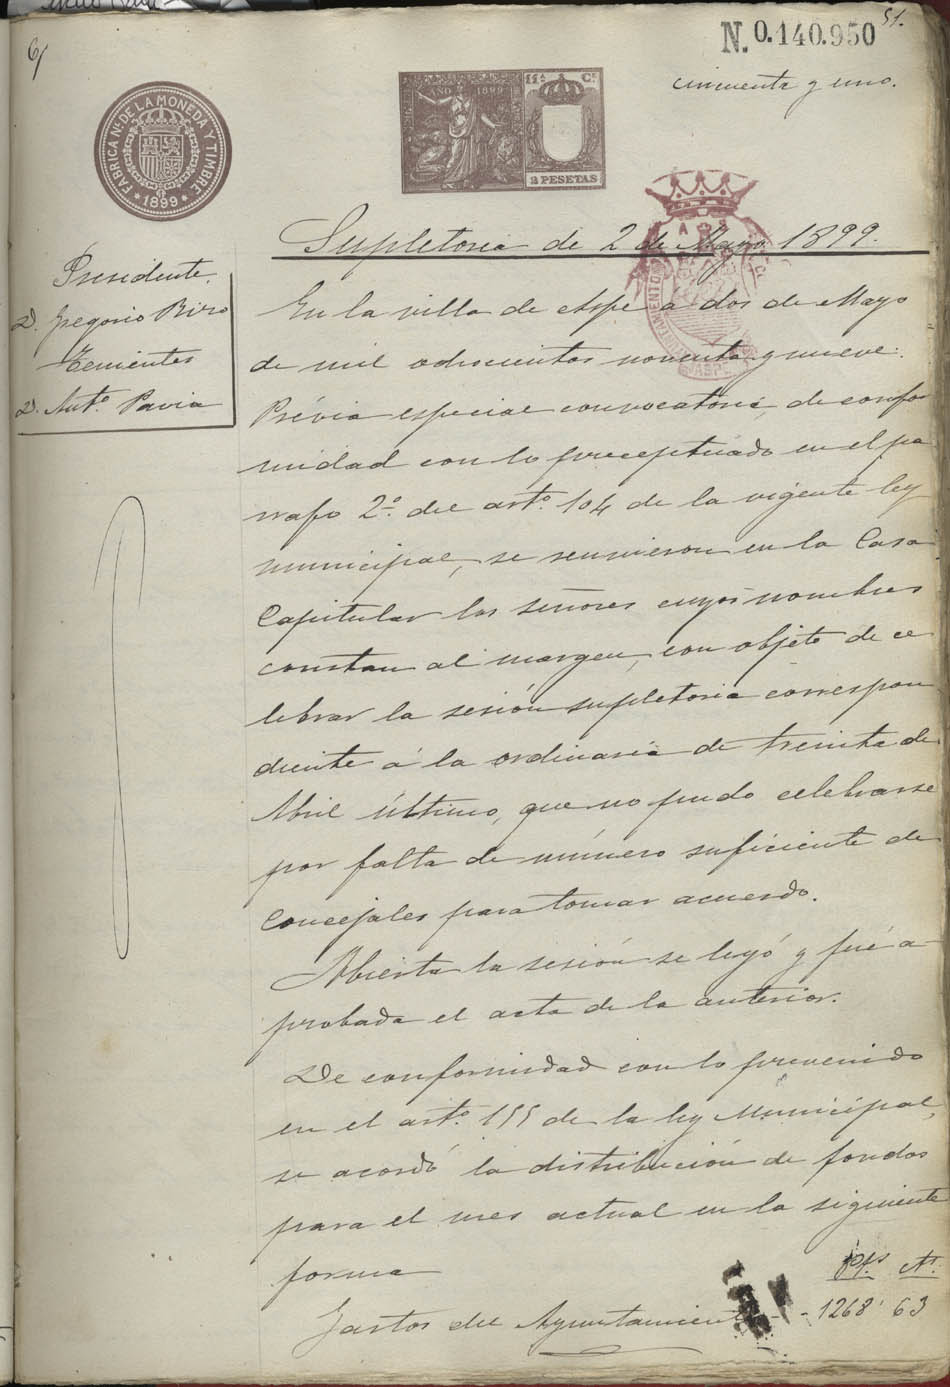 6/
51.
N. 0.140.950
cincuenta y uno.
FABRICA Nl. DE LA MONEDA Y TIMBRE
* 1899 *
AÑO 1899
11ª Ce.
2 PESETAS
Supletoria de 2 de Mayo 1899.
Presidente.
D. Gregorio Rizo
Tenientes
D. Antº Pavia
En la villa de Aspe á dos de Mayo
de mil ochocientos noventa y nueve:
Prévia especial convocatoria, de confor
midad con lo preceptuado en el pa
rrafo 2º del artº 104 de la vigente ley
municipal, se reunieron en la Casa
Capitular los señores cuyos nombres
constan al margen, con objeto de ce
lebrar la sesión supletoria correspon
diente á la ordinaria de treinta de
Abril último, que no pudo celebrarse
por falta de número suficiente de
Concejales para tomar acuerdo.
Abierta la sesión se leyó y fué a
probada el acta de la anterior.
De conformidad con lo prevenido
en el artº 155 de la ley Municipal,
se acordó la distribución de fondos
para el mes actual en la siguiente
forma
Pts Cts
Gastos del Ayuntamiento - - 1268' 63